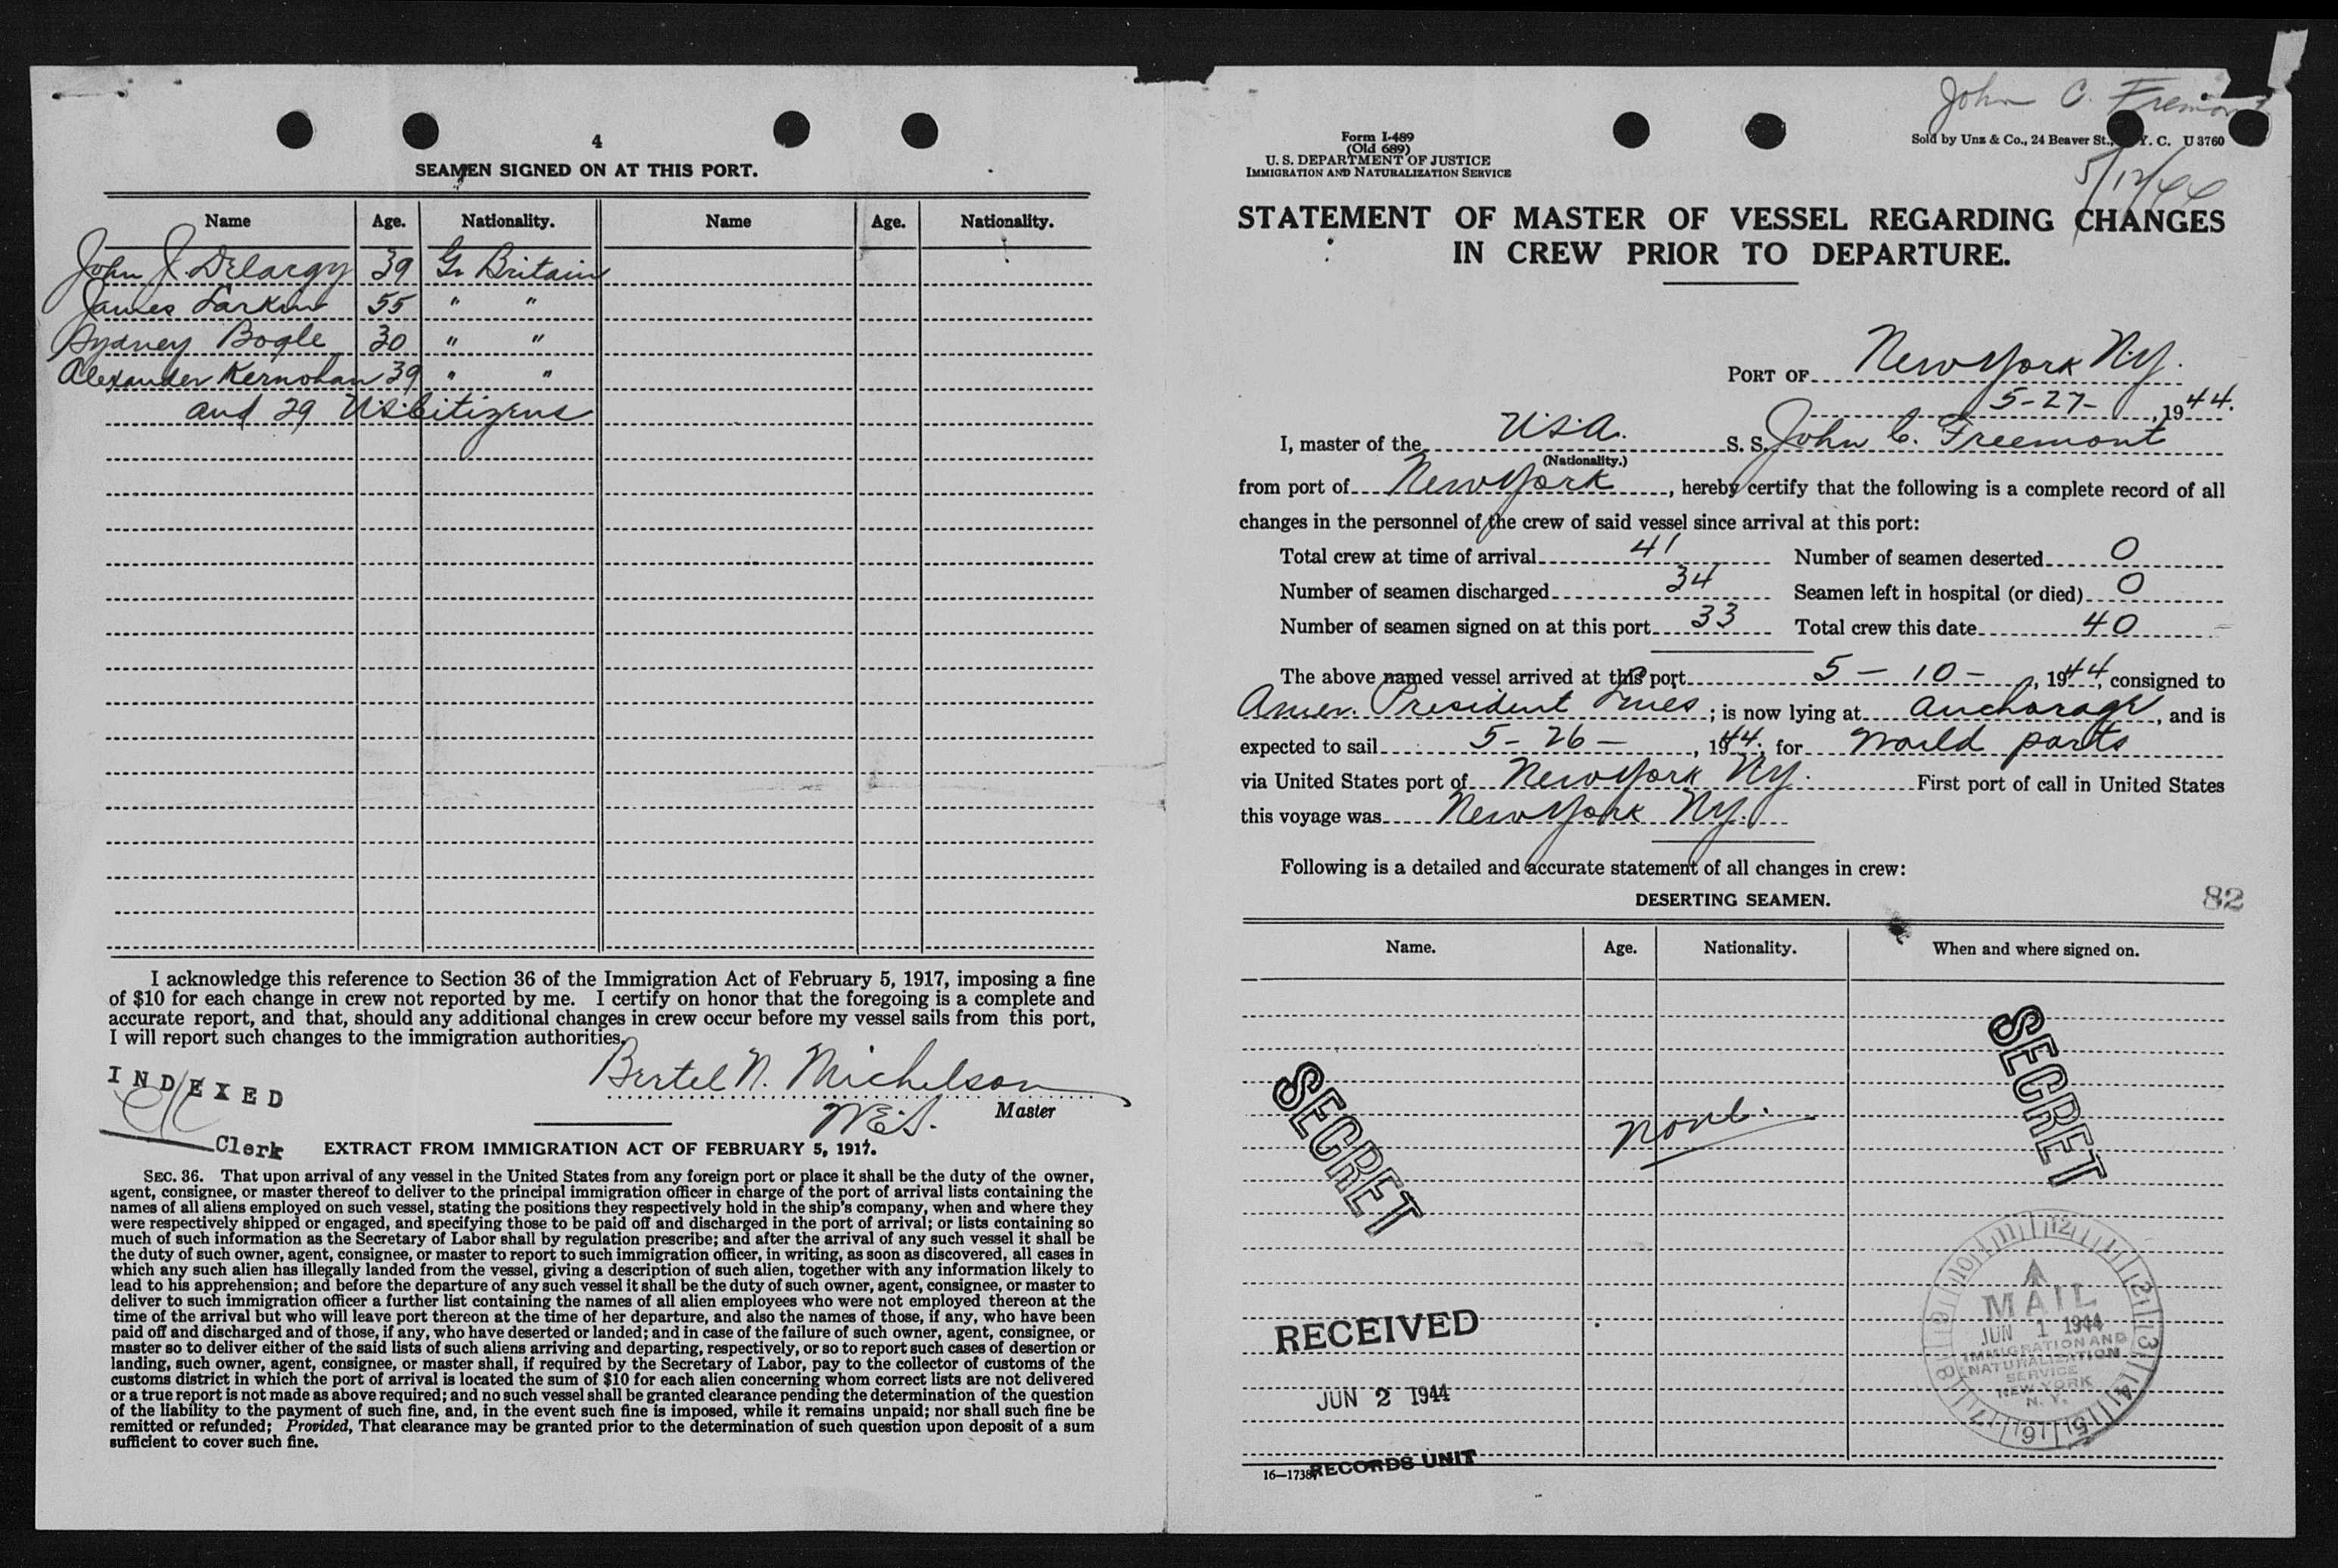 4
SEAMEN SIGNED ON AT THIS PORT.
Name Age. Nationality. Name Age. Nationality.
John J. Delargy 39 Gr Britain
James Larkin 55 " "
Sydney Bogle 30 " "
Alexander Kernohan 39 " "
and 29 U.S. Citizens
I acknowledge this reference to Section 36 of the Immigration Act of February 5, 1917, imposing a fine
of $10 for each change in crew not reported by me. I certify on honor that the foregoing is a complete and
accurate report, and that, should any additional changes in crew occur before my vessel sails from this port,
I will report such changes to the immigration authorities.
Bertel N. Michelson
Master
INDEXED
Clerk
EXTRACT FROM IMMIGRATION ACT OF FEBRUARY 5, 1917.
SEC. 36. That upon arrival of any vessel in the United States from any foreign port or place it shall be the duty of the owner,
agent, consignee, or master thereof to deliver to the principal immigration officer in charge of the port of arrival lists containing the
names of all aliens employed on such vessel, stating the positions they respectively hold in the ship's company, when and where they
were respectively shipped or engaged, and specifying those to be paid off and discharged in the port of arrival; or lists containing so
much of such information as the Secretary of Labor shall by regulation prescribe; and after the arrival of any such vessel it shall be
the duty of such owner, agent, consignee, or master to report to such immigration officer, in writing, as soon as discovered, all cases in
which any such alien has illegally landed from the vessel, giving a description of such alien, together with any information likely to
lead to his apprehension; and before the departure of any such vessel it shall be the duty of such owner, agent, consignee, or master to
deliver to such immigration officer a further list containing the names of all alien employees who were not employed thereon at the
time of the arrival but who will leave port thereon at the time of her departure, and also the names of those, if any, who have been
paid off and discharged and of those, if any, who have deserted or landed; and in case of the failure of such owner, agent, consignee, or
master so to deliver either of the said lists of such aliens arriving and departing, respectively, or so to report such cases of desertion or
landing, such owner, agent, consignee, or master shall, if required by the Secretary of Labor, pay to the collector of customs of the
customs district in which the port of arrival is located the sum of $10 for each alien concerning whom correct lists are not delivered
or a true report is not made as above required; and no such vessel shall be granted clearance pending the determination of the question
of the liability to the payment of such fine, and, in the event such fine is imposed, while it remains unpaid; nor shall such fine be
remitted or refunded; Provided, That clearance may be granted prior to the determination of such question upon deposit of a sum
sufficient to cover such fine.
John C. Fremont
Form I-489
(Old 689)
U. S. DEPARTMENT OF JUSTICE
IMMIGRATION AND NATURALIZATION SERVICE
Sold by Unz & Co., 24 Beaver St., Y. C. U 3760
5/12/44
STATEMENT OF MASTER OF VESSEL REGARDING CHANGES
IN CREW PRIOR TO DEPARTURE.
PORT OF New York N.Y.
5-27-, 1944.
I, master of the U.S.A. S. S. John C. Freemont
(Nationality.)
from port of New York, hereby certify that the following is a complete record of all
changes in the personnel of the crew of said vessel since arrival at this port:
Total crew at time of arrival 41 Number of seamen deserted 0
Number of seamen discharged 34 Seamen left in hospital (or died) 0
Number of seamen signed on at this port 33 Total crew this date 40
The above named vessel arrived at this port 5-10-, 1944, consigned to
Amer. President Lines; is now lying at anchorage, and is
expected to sail 5-26-, 1944, for World ports
via United States port of New York N.Y. First port of call in United States
this voyage was New York N.Y.
Following is a detailed and accurate statement of all changes in crew:
DESERTING SEAMEN.
82
Name. Age. Nationality. When and where signed on.
SECRET
SECRET
None.
RECEIVED
JUN 2 1944
RECORDS UNIT
MAIL
JUN 1 1944
IMMIGRATION AND
NATURALIZATION
SERVICE
NEW YORK
N. Y.
12 1 2 3 4 5 6 7 8 9 10 11